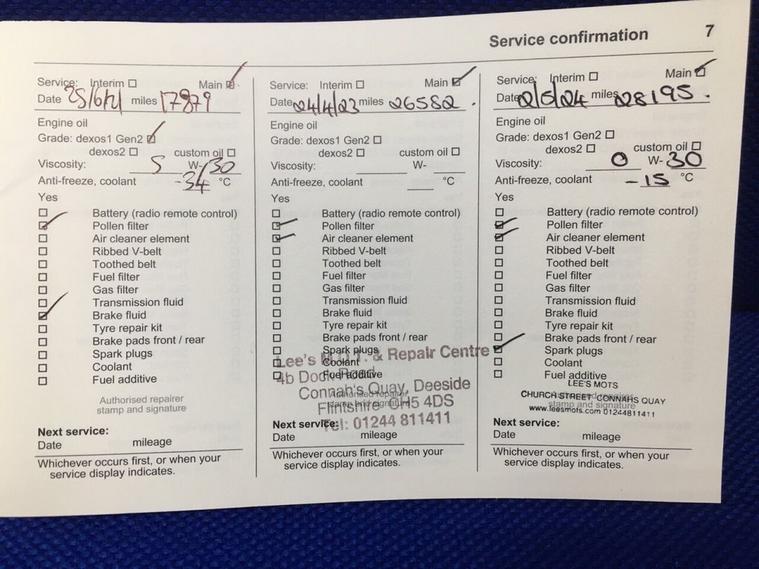 Service confirmation 7
Service: Interim ☐ Main ☑
Date 25/6/21 miles 17879
Engine oil
Grade: dexos1 Gen2 ☑
dexos2 ☐ custom oil ☐
Viscosity: 5 W-30
Anti-freeze, coolant -34 °C
Yes
☐ Battery (radio remote control)
☑ Pollen filter
☐ Air cleaner element
☐ Ribbed V-belt
☐ Toothed belt
☐ Fuel filter
☐ Gas filter
☐ Transmission fluid
☑ Brake fluid
☐ Tyre repair kit
☐ Brake pads front / rear
☐ Spark plugs
☐ Coolant
☐ Fuel additive
Authorised repairer
stamp and signature
Next service:
Date mileage
Whichever occurs first, or when your
service display indicates.
Service: Interim ☐ Main ☑
Date 24/4/23 miles 26582.
Engine oil
Grade: dexos1 Gen2 ☐
dexos2 ☐ custom oil ☐
Viscosity: W-
Anti-freeze, coolant °C
Yes
☐ Battery (radio remote control)
☑ Pollen filter
☑ Air cleaner element
☐ Ribbed V-belt
☐ Toothed belt
☐ Fuel filter
☐ Gas filter
☐ Transmission fluid
☐ Brake fluid
☐ Tyre repair kit
☐ Brake pads front / rear
☐ Spark plugs
☐ Coolant
☐ Fuel additive
Lee's M.O.T. & Repair Centre
4b Dock Road
Connah's Quay, Deeside
Flintshire CH5 4DS
Tel: 01244 811411
Authorised repairer
stamp and signature
Next service:
Date mileage
Whichever occurs first, or when your
service display indicates.
Service: Interim ☐ Main ☑
Date 2/5/24 miles 28195.
Engine oil
Grade: dexos1 Gen2 ☐
dexos2 ☐ custom oil ☐
Viscosity: 0 W-30
Anti-freeze, coolant -15 °C
Yes
☐ Battery (radio remote control)
☑ Pollen filter
☑ Air cleaner element
☐ Ribbed V-belt
☐ Toothed belt
☐ Fuel filter
☐ Gas filter
☐ Transmission fluid
☐ Brake fluid
☐ Tyre repair kit
☐ Brake pads front / rear
☑ Spark plugs
☐ Coolant
☐ Fuel additive
LEE'S MOTS
CHURCH STREET CONNAHS QUAY
www.leesmots.com 01244811411
stamp and signature
Next service:
Date mileage
Whichever occurs first, or when your
service display indicates.